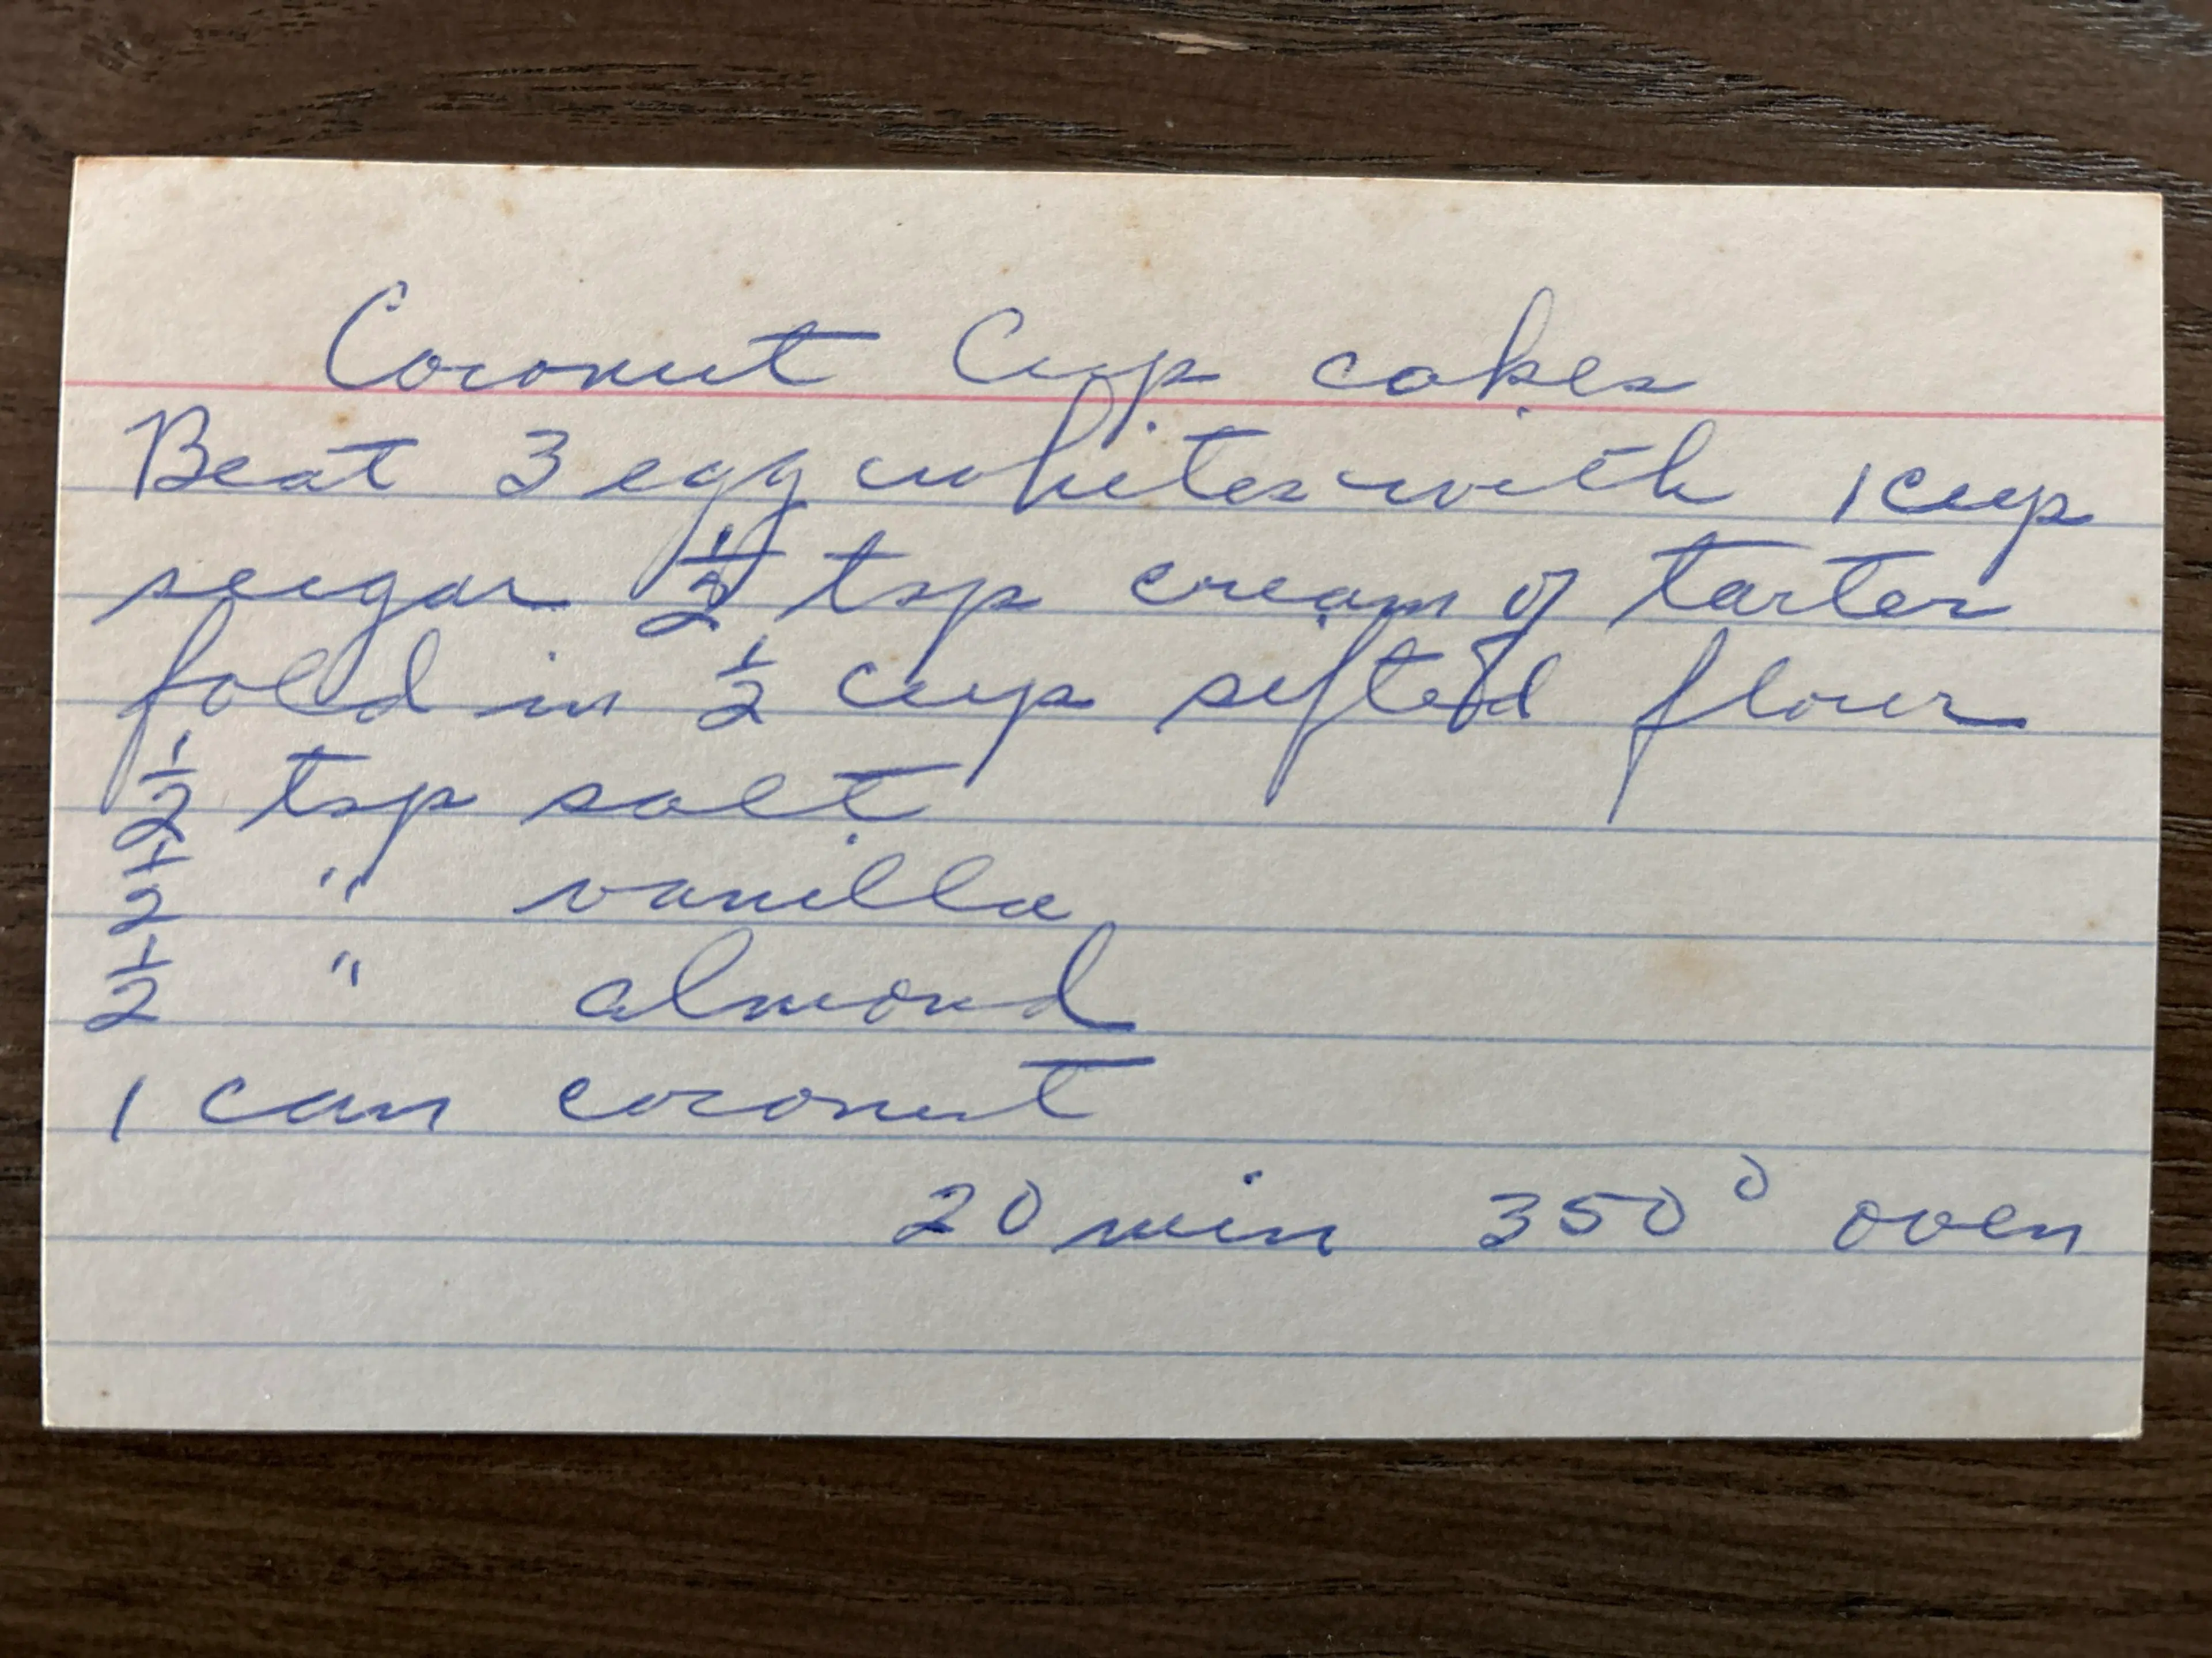 Coconut Cup cakes
Beat 3 egg whites with 1 cup
sugar ½ tsp cream of tarter
fold in ½ cup sifted flour
½ tsp salt
½ " vanilla
½ " almond
1 can coconut
20 min 350° oven